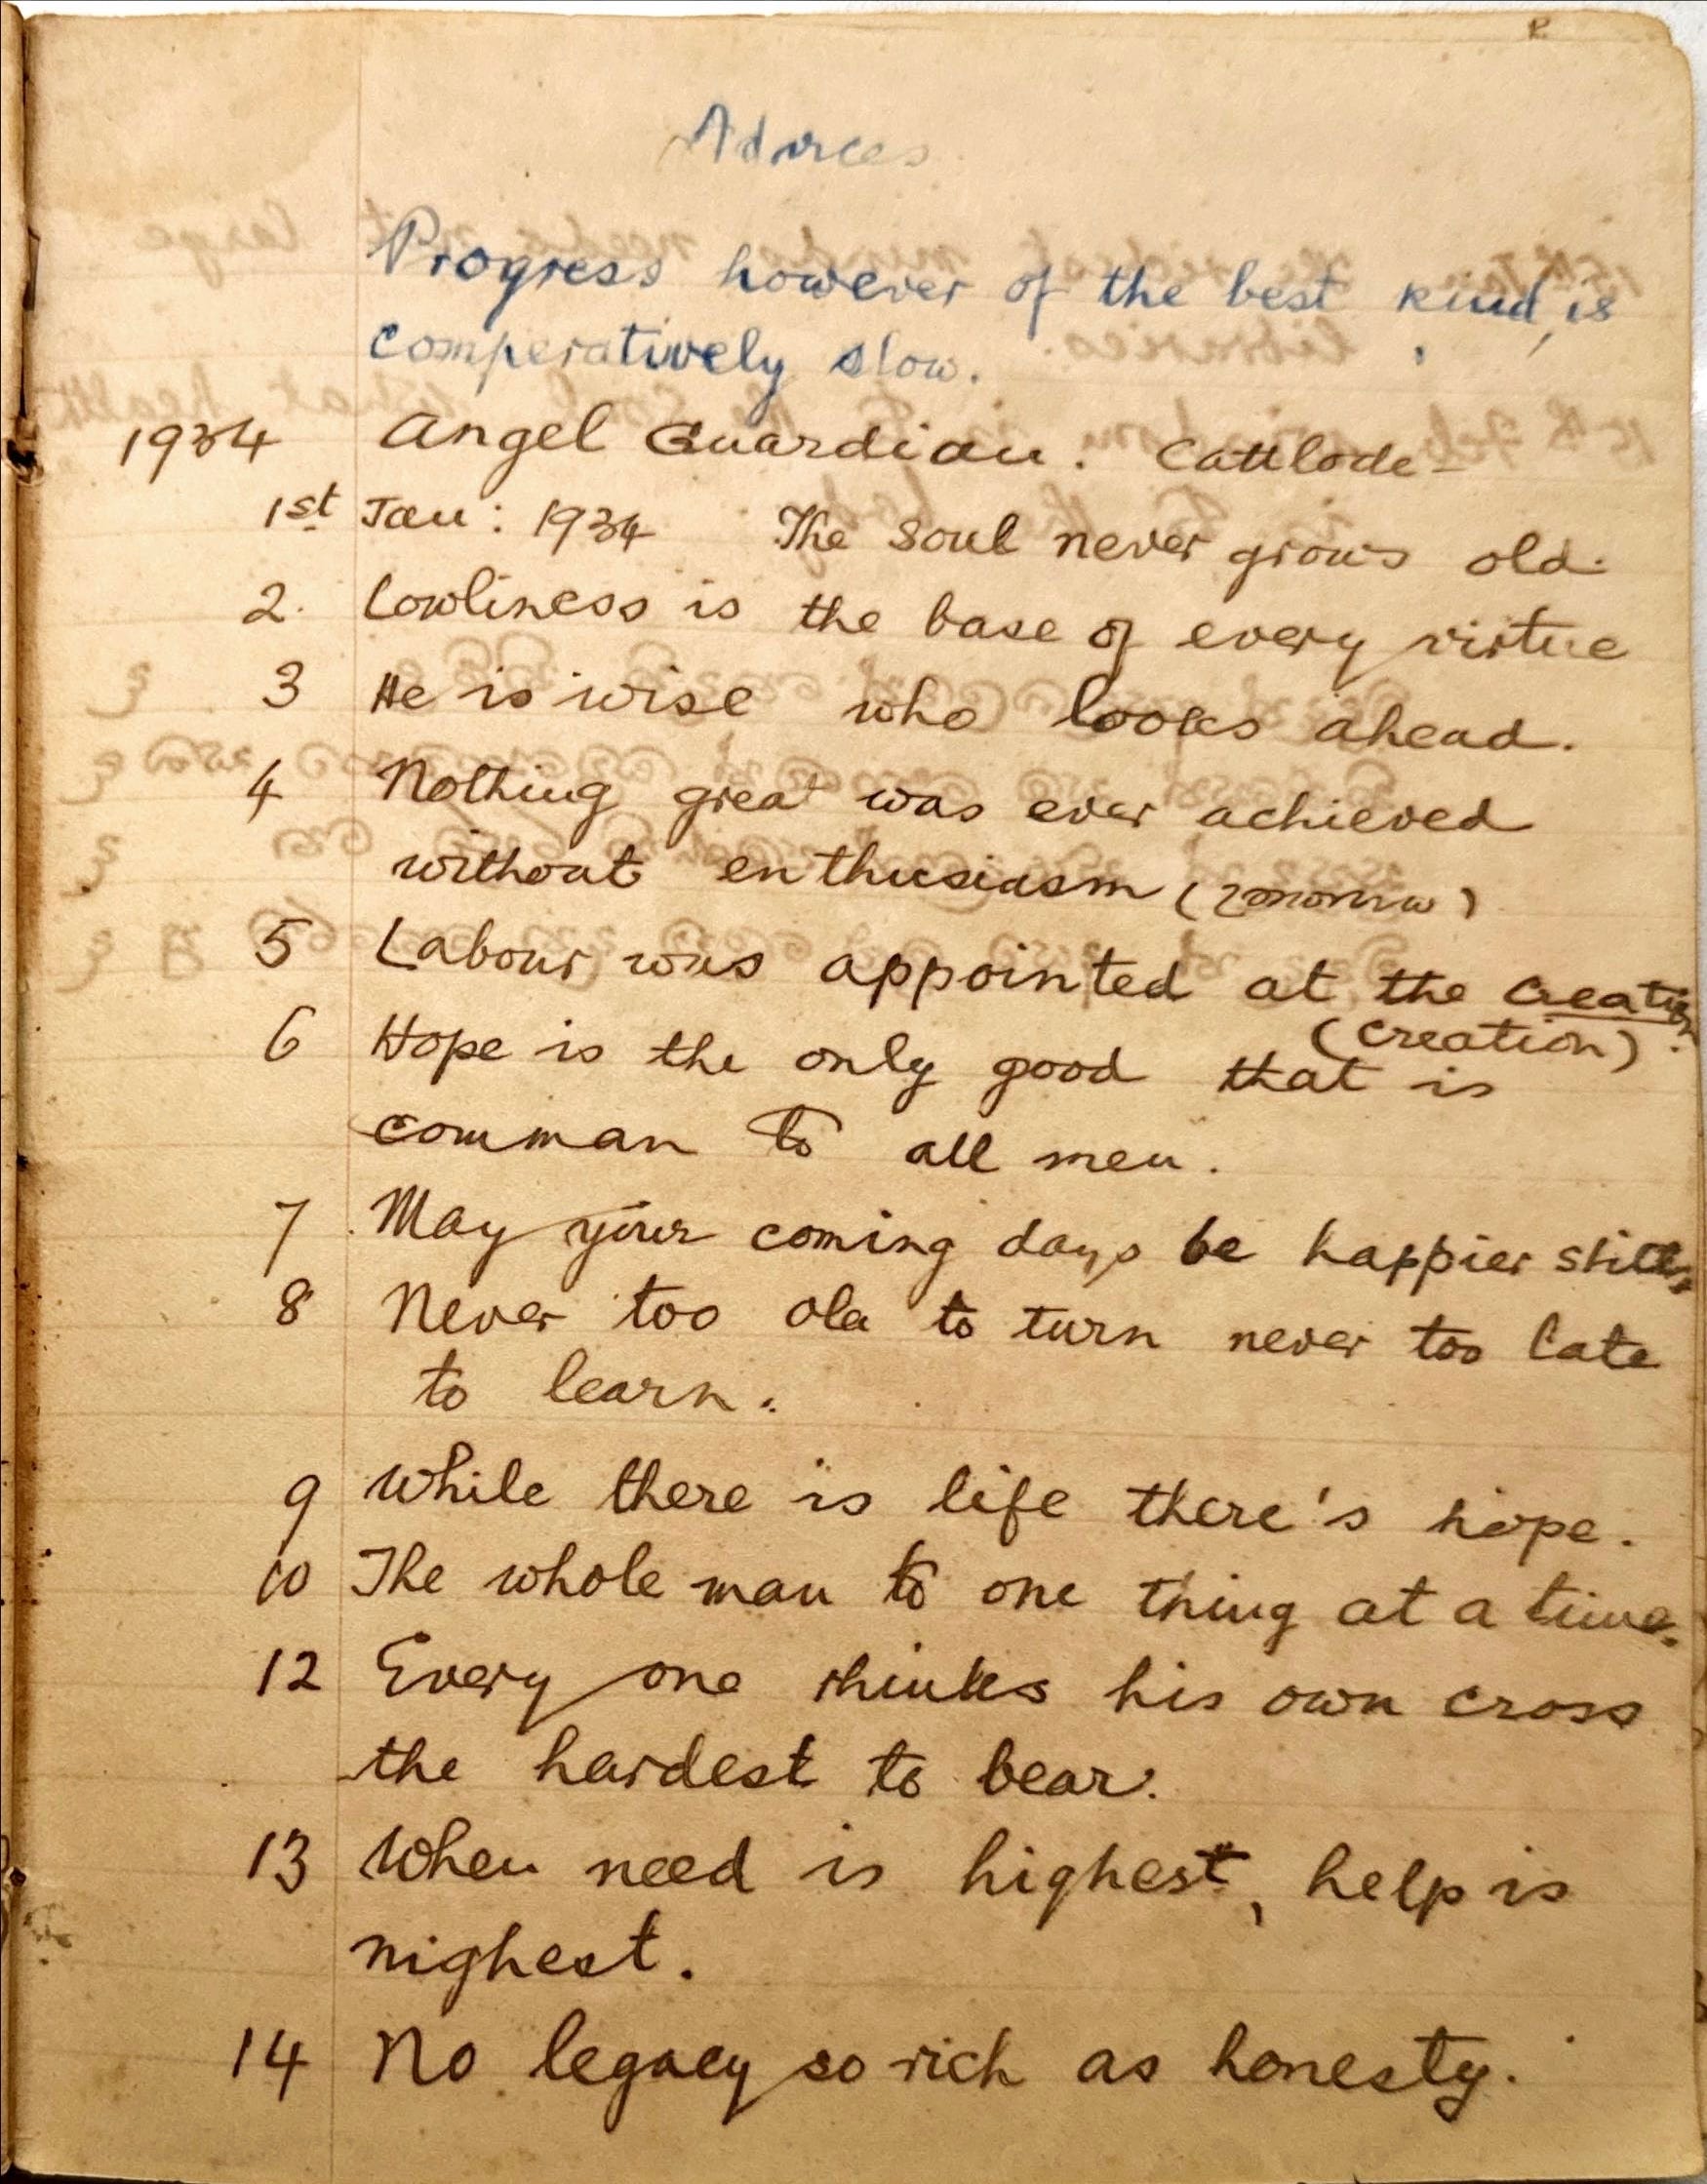 Advices
Progress however of the best kind, is
comperatively slow.
1934 Angel Guardian. Cattlode-
1st Jan: 1934 The soul never grows old.
2. Lowliness is the base of every virtue
3 He is wise who looks ahead.
4 Nothing great was ever achieved
without enthusiasm
5 Labour was appointed at the creation
(creation).
6 Hope is the only good that is
comman to all men.
7 May your coming days be happier still.
8 Never too old to turn never too late
to learn.
9 While there is life there's hope.
10 The whole man to one thing at a time.
12 Every one thinks his own cross
the hardest to bear.
13 When need is highest, help is
nighest.
14 No legacy so rich as honesty.